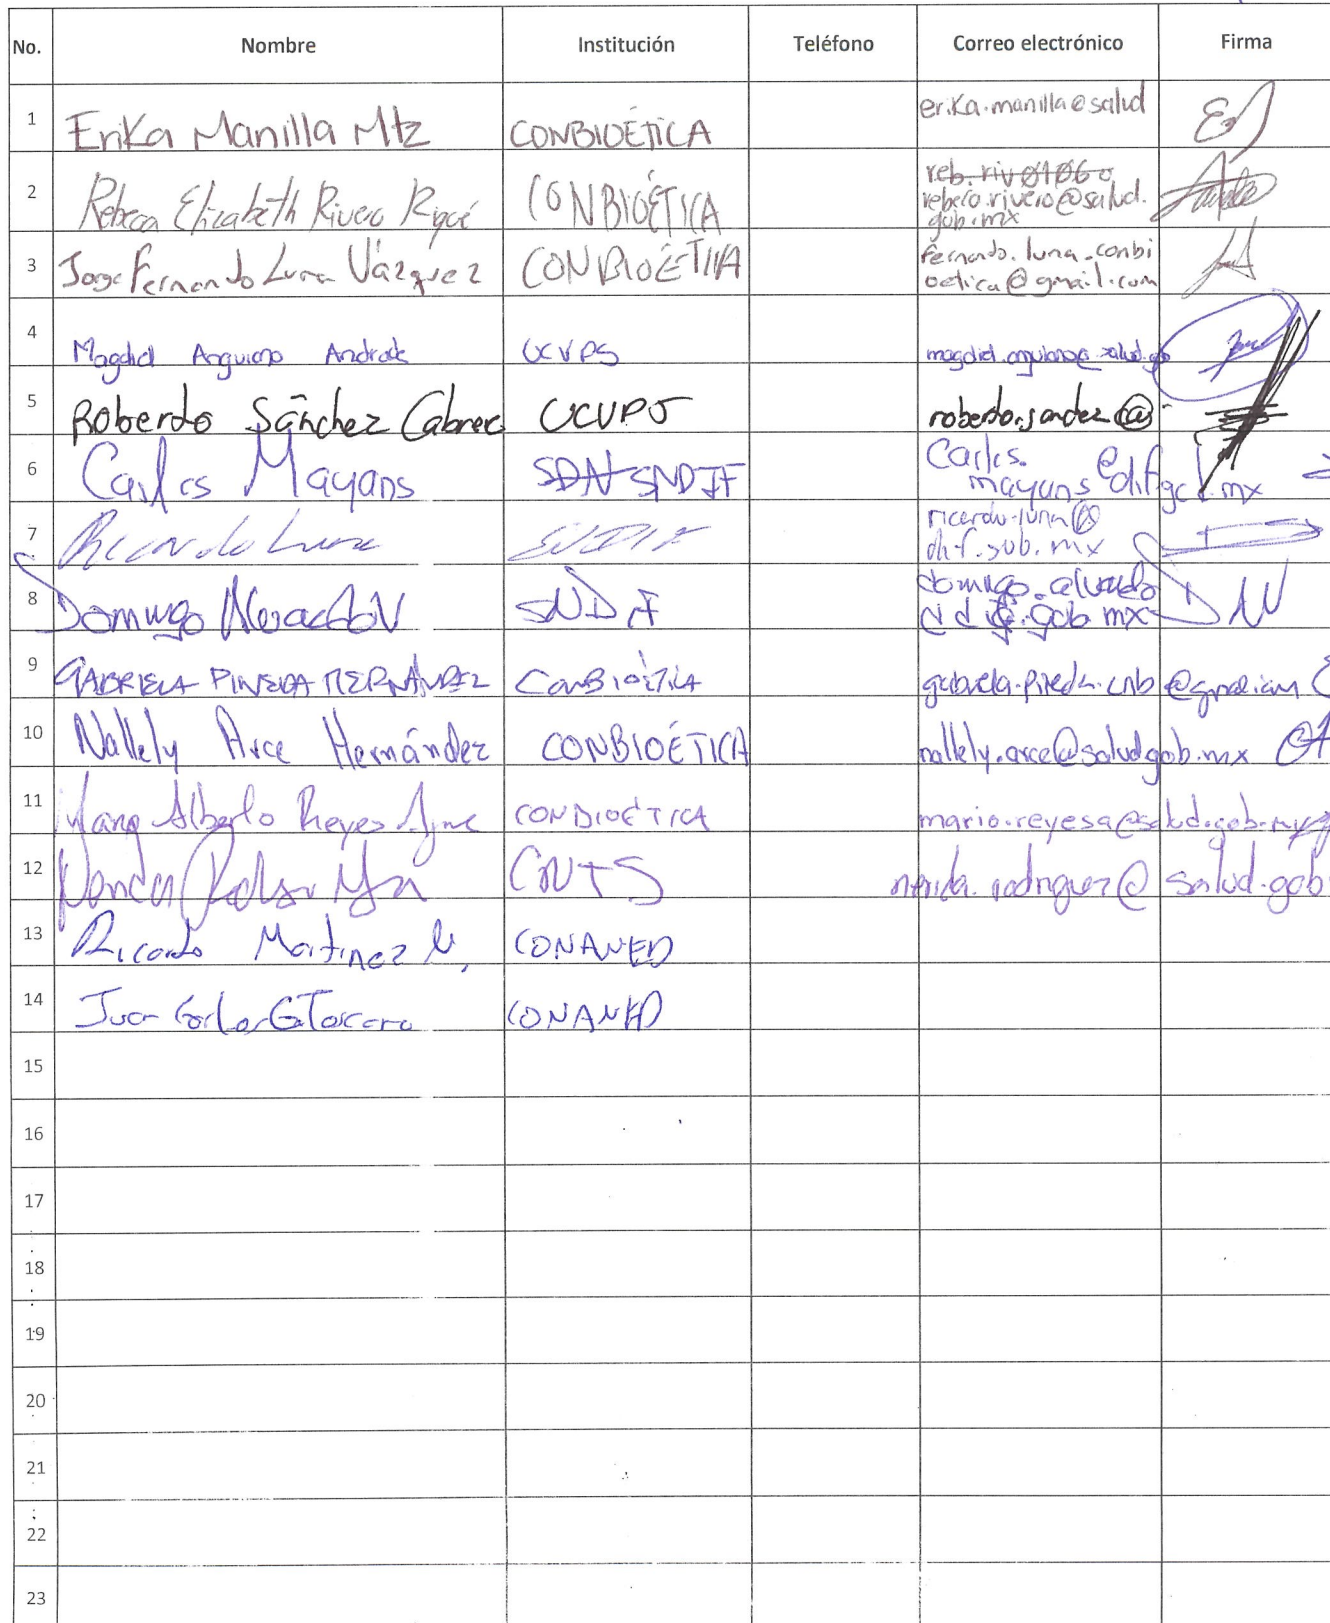 No. Nombre Institución Teléfono Correo electrónico Firma
1 Erika Manilla Mtz CONBIOÉTICA erika.manilla@salud
2 Rebeca Elizabeth Rivero CONBIOÉTICA reb.riv01060
rebeca.rivero@salud.
gob.mx
3 Jorge Fernando Luna Vázquez CONBIOÉTICA fernando.luna.conbi
oetica@gmail.com
4 Magdiel Anguiano Andrade UCVPS magdiel.anguiano@salud.go
5 Roberto Sánchez Cabrer UCVPS roberto.sanchez@
6 Carlos Mayans SDN SNDIF Carlos.
mayans@dif.gob.mx
7 Ricardo Luna SNDIF ricardo.luna@
dif.gob.mx
8 Domingo Alvarado V SNDIF domingo.alvarado
@dif.gob.mx
9 GABRIELA PINEDA HERNÁNDEZ CONBIOÉTICA gabriela.pineda.cnb@gmail.com
10 Nallely Arce Hernández CONBIOÉTICA nallely.arce@salud.gob.mx
11 Mario Alberto Reyes CONBIOÉTICA mario.reyesa@salud.gob.mx
12 CNTS nerida.rodriguez@salud.gob
13 Ricardo Martinez CONAMED
14 Juan Carlos CONAMED
15
16
17
18
19
20
21
22
23